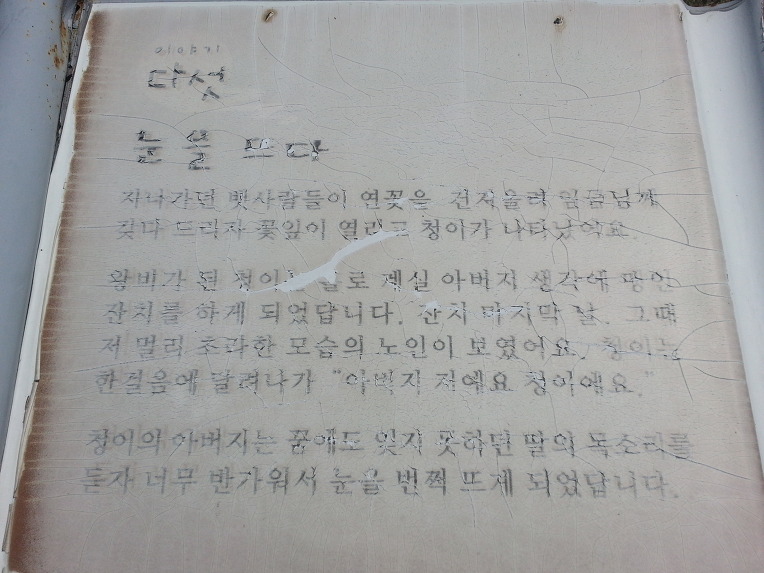 이야기
다섯
눈을 뜨다
지나가던 뱃사람들이 연꽃을 건져올려 임금님께
갖다 드리자 꽃잎이 열리고 청이가 나타났어요.
왕비가 된 청이는 홀로 계실 아버지 생각에 맹인
잔치를 하게 되었답니다. 잔치 마지막 날. 그때
저 멀리 초라한 모습의 노인이 보였어요. 청이는
한걸음에 달려나가 "아버지 저예요 청이예요."
청이의 아버지는 꿈에도 잊지 못하던 딸의 목소리를
듣자 너무 반가워서 눈을 번쩍 뜨게 되었답니다.